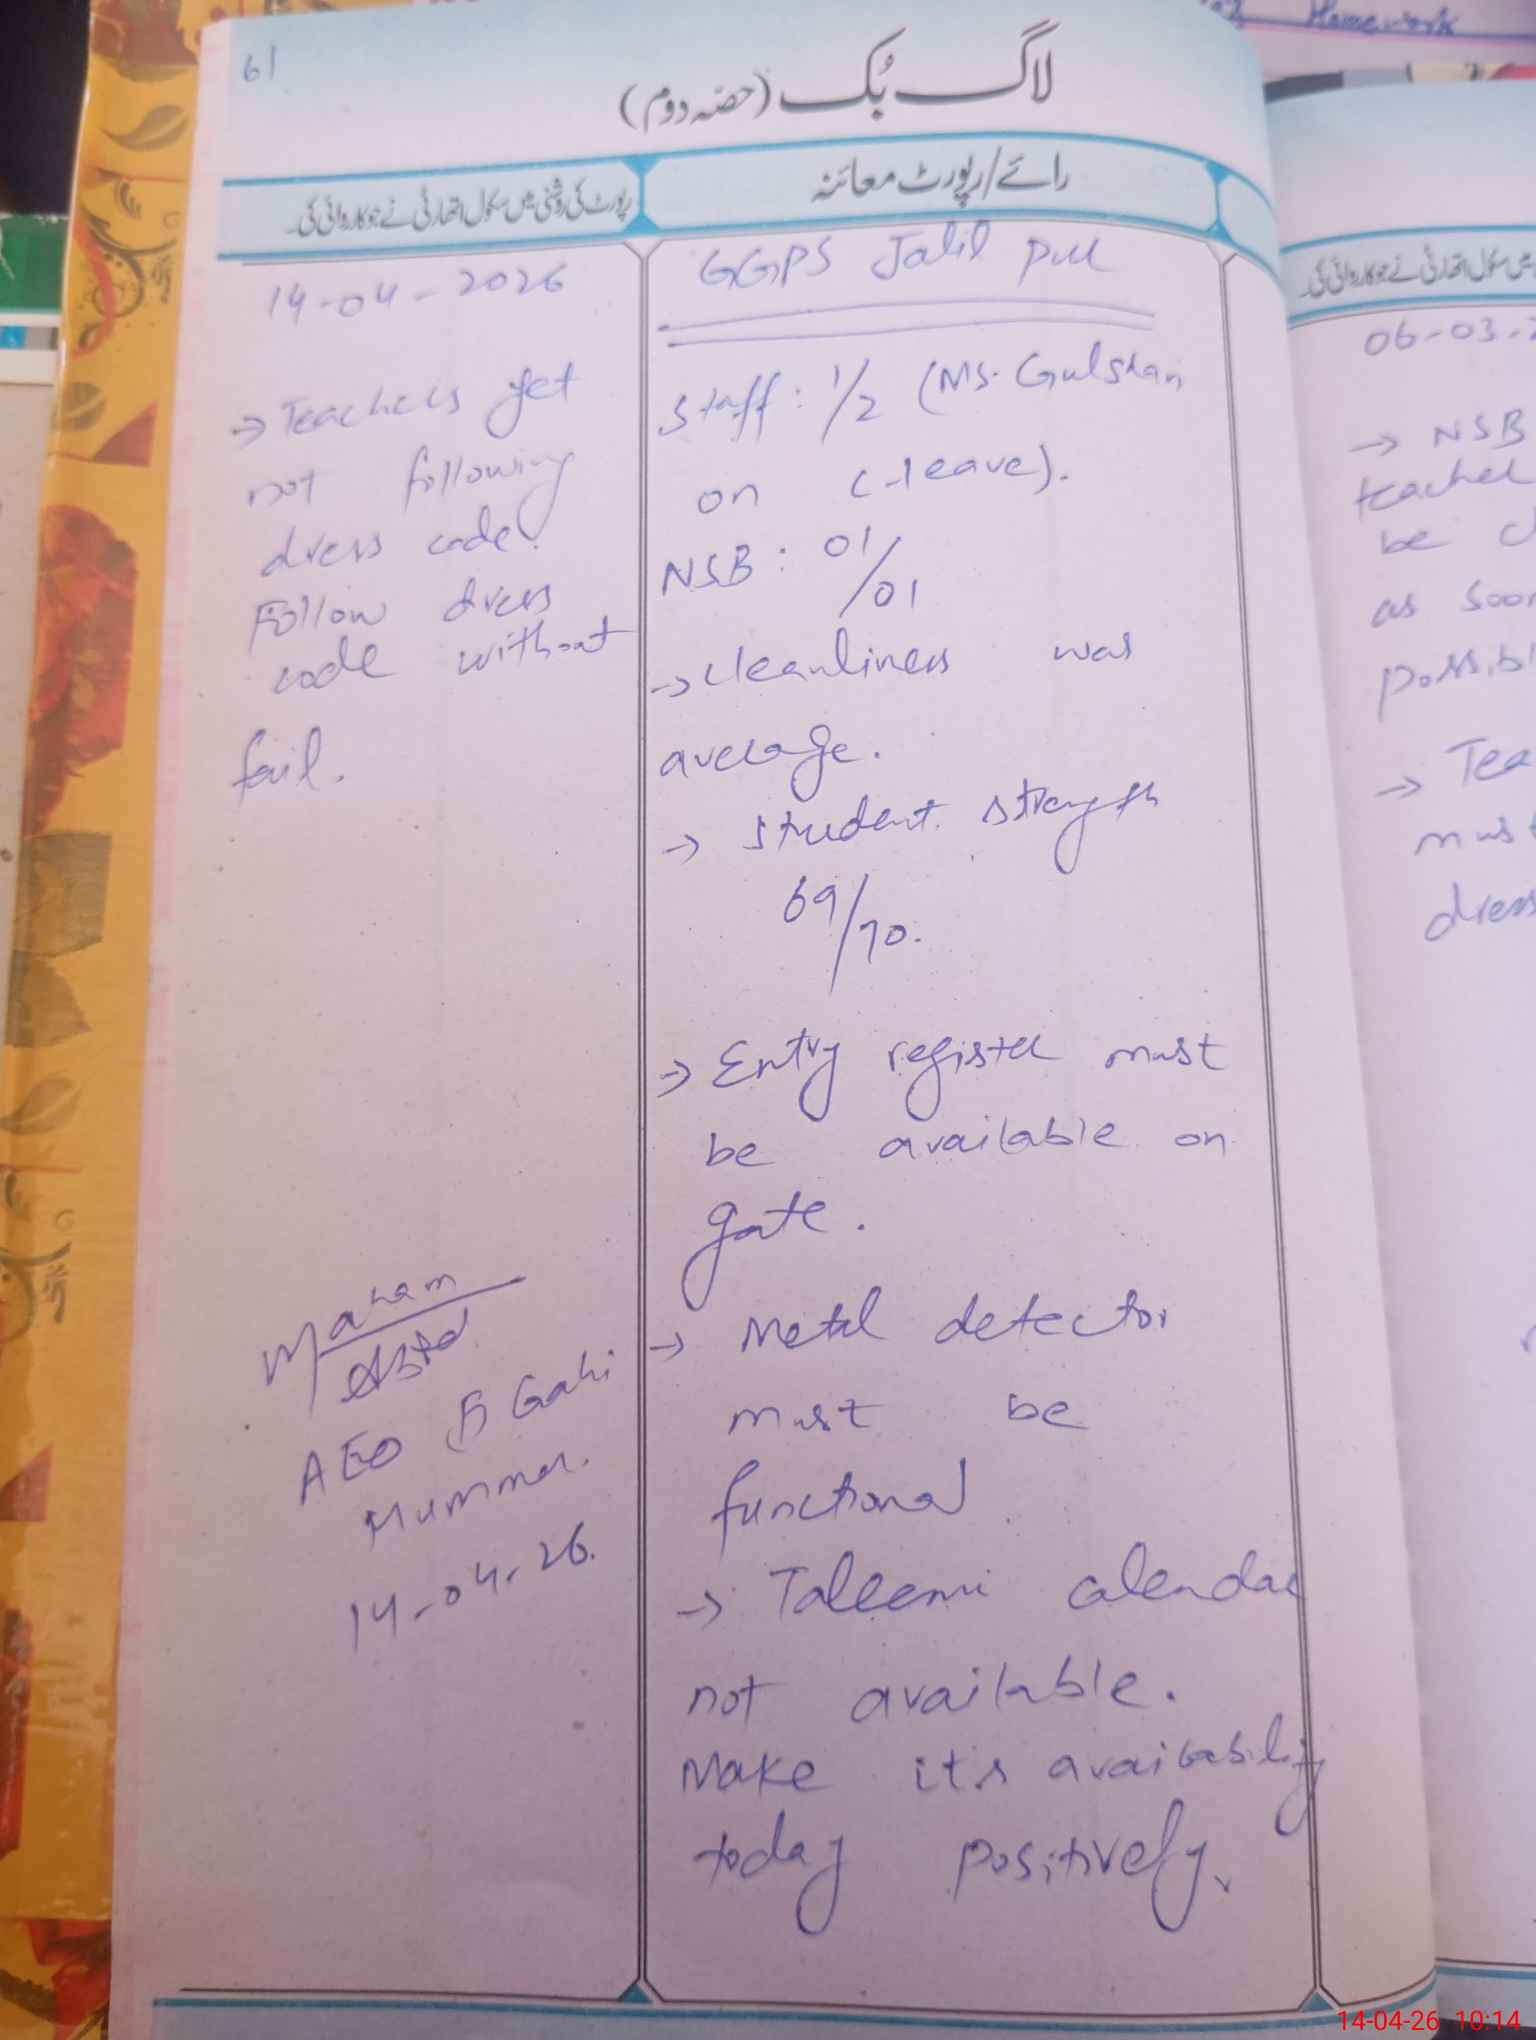 61
لاگ بُک (حصّہ دوم)
رائے/رپورٹ معائنہ
رپورٹ کی روشنی میں سکول اتھارٹی نے جو کاروائی کی۔
GGPS Jalil pur
Staff: 1/2 (Ms. Gulshan
on C-leave).
NSB: 01/01
→ cleanliness was
average.
→ student strength
69/70.
→ Entry register must
be available on
gate.
→ Metal detector
must be
functional
→ Taleemi calendar
not available.
Make its availability
today positively.
14-04-2026
→ Teachers yet
not following
dress code.
Follow dress
code without
fail.
Maham
AEO Gahi
Mummar.
14-04-26.
Homework
سکول اتھارٹی نے جو کاروائی کی۔
06-03-
→ NSB
teacher
be
as soon
possibl
→ Tea
must
dress
14-04-26 10:14